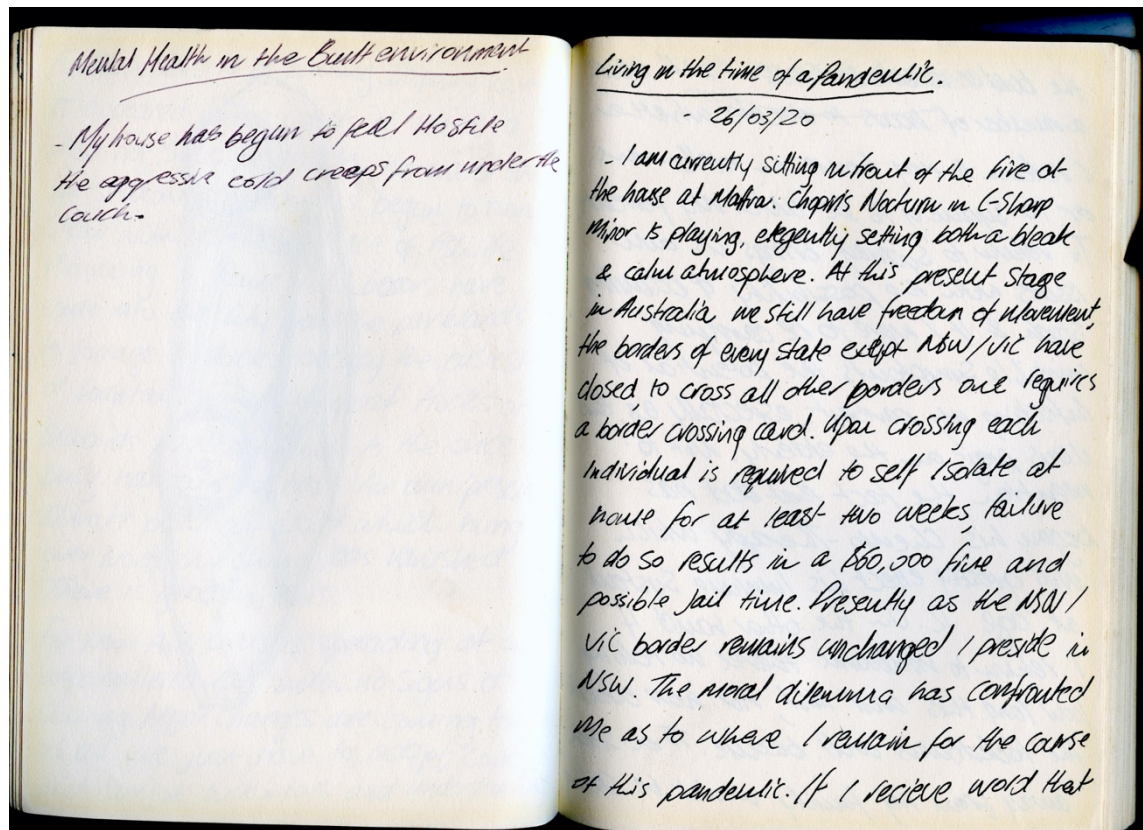 Mental Health in the Built environment
- My house has begun to feel Hostile
the aggressive cold creeps from under the
couch.
Living in the time of a Pandemic.
- 26/03/20
- I am currently sitting infront of the fire at
the house at Chopin's Nocturn in C-Sharp
Minor is playing, elegently setting both a bleak
& calm atmosphere. At this present stage
in Australia we still have freedom of movement,
the borders of every state except NSW/VIC have
closed to cross all other borders one requires
a border crossing card. Upon crossing each
individual is required to self isolate at
house for at least two weeks, failure
to do so results in a $60,000 fine and
possible jail time. Presently as the NSW/
VIC border remains unchanged I preside in
NSW. The moral dilemma has confronted
me as to where I remain for the course
of this pandemic. If I recieve word that